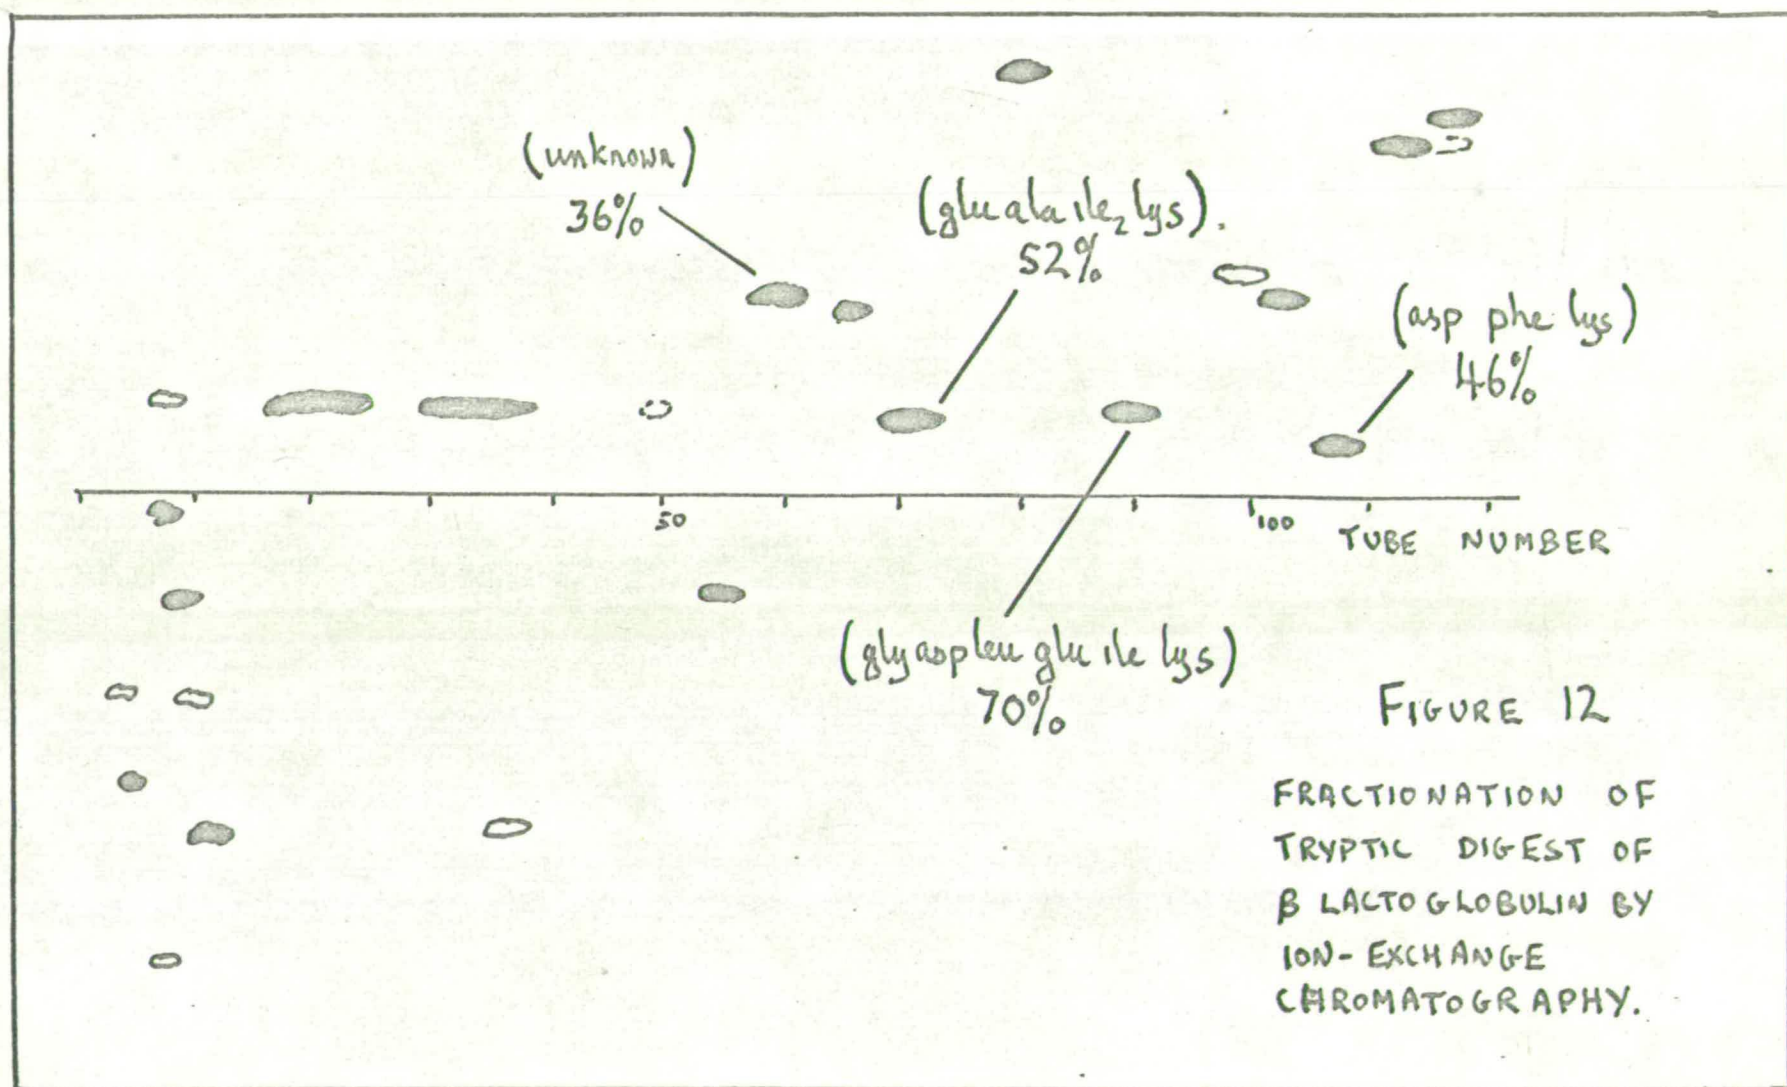 (unknown)
36%
(glu ala ile₂ lys).
52%
(asp phe lys)
46%
50
100
TUBE NUMBER
(gly asp leu glu ile lys)
70%
FIGURE 12
FRACTIONATION OF
TRYPTIC DIGEST OF
β LACTOGLOBULIN BY
ION-EXCHANGE
CHROMATOGRAPHY.